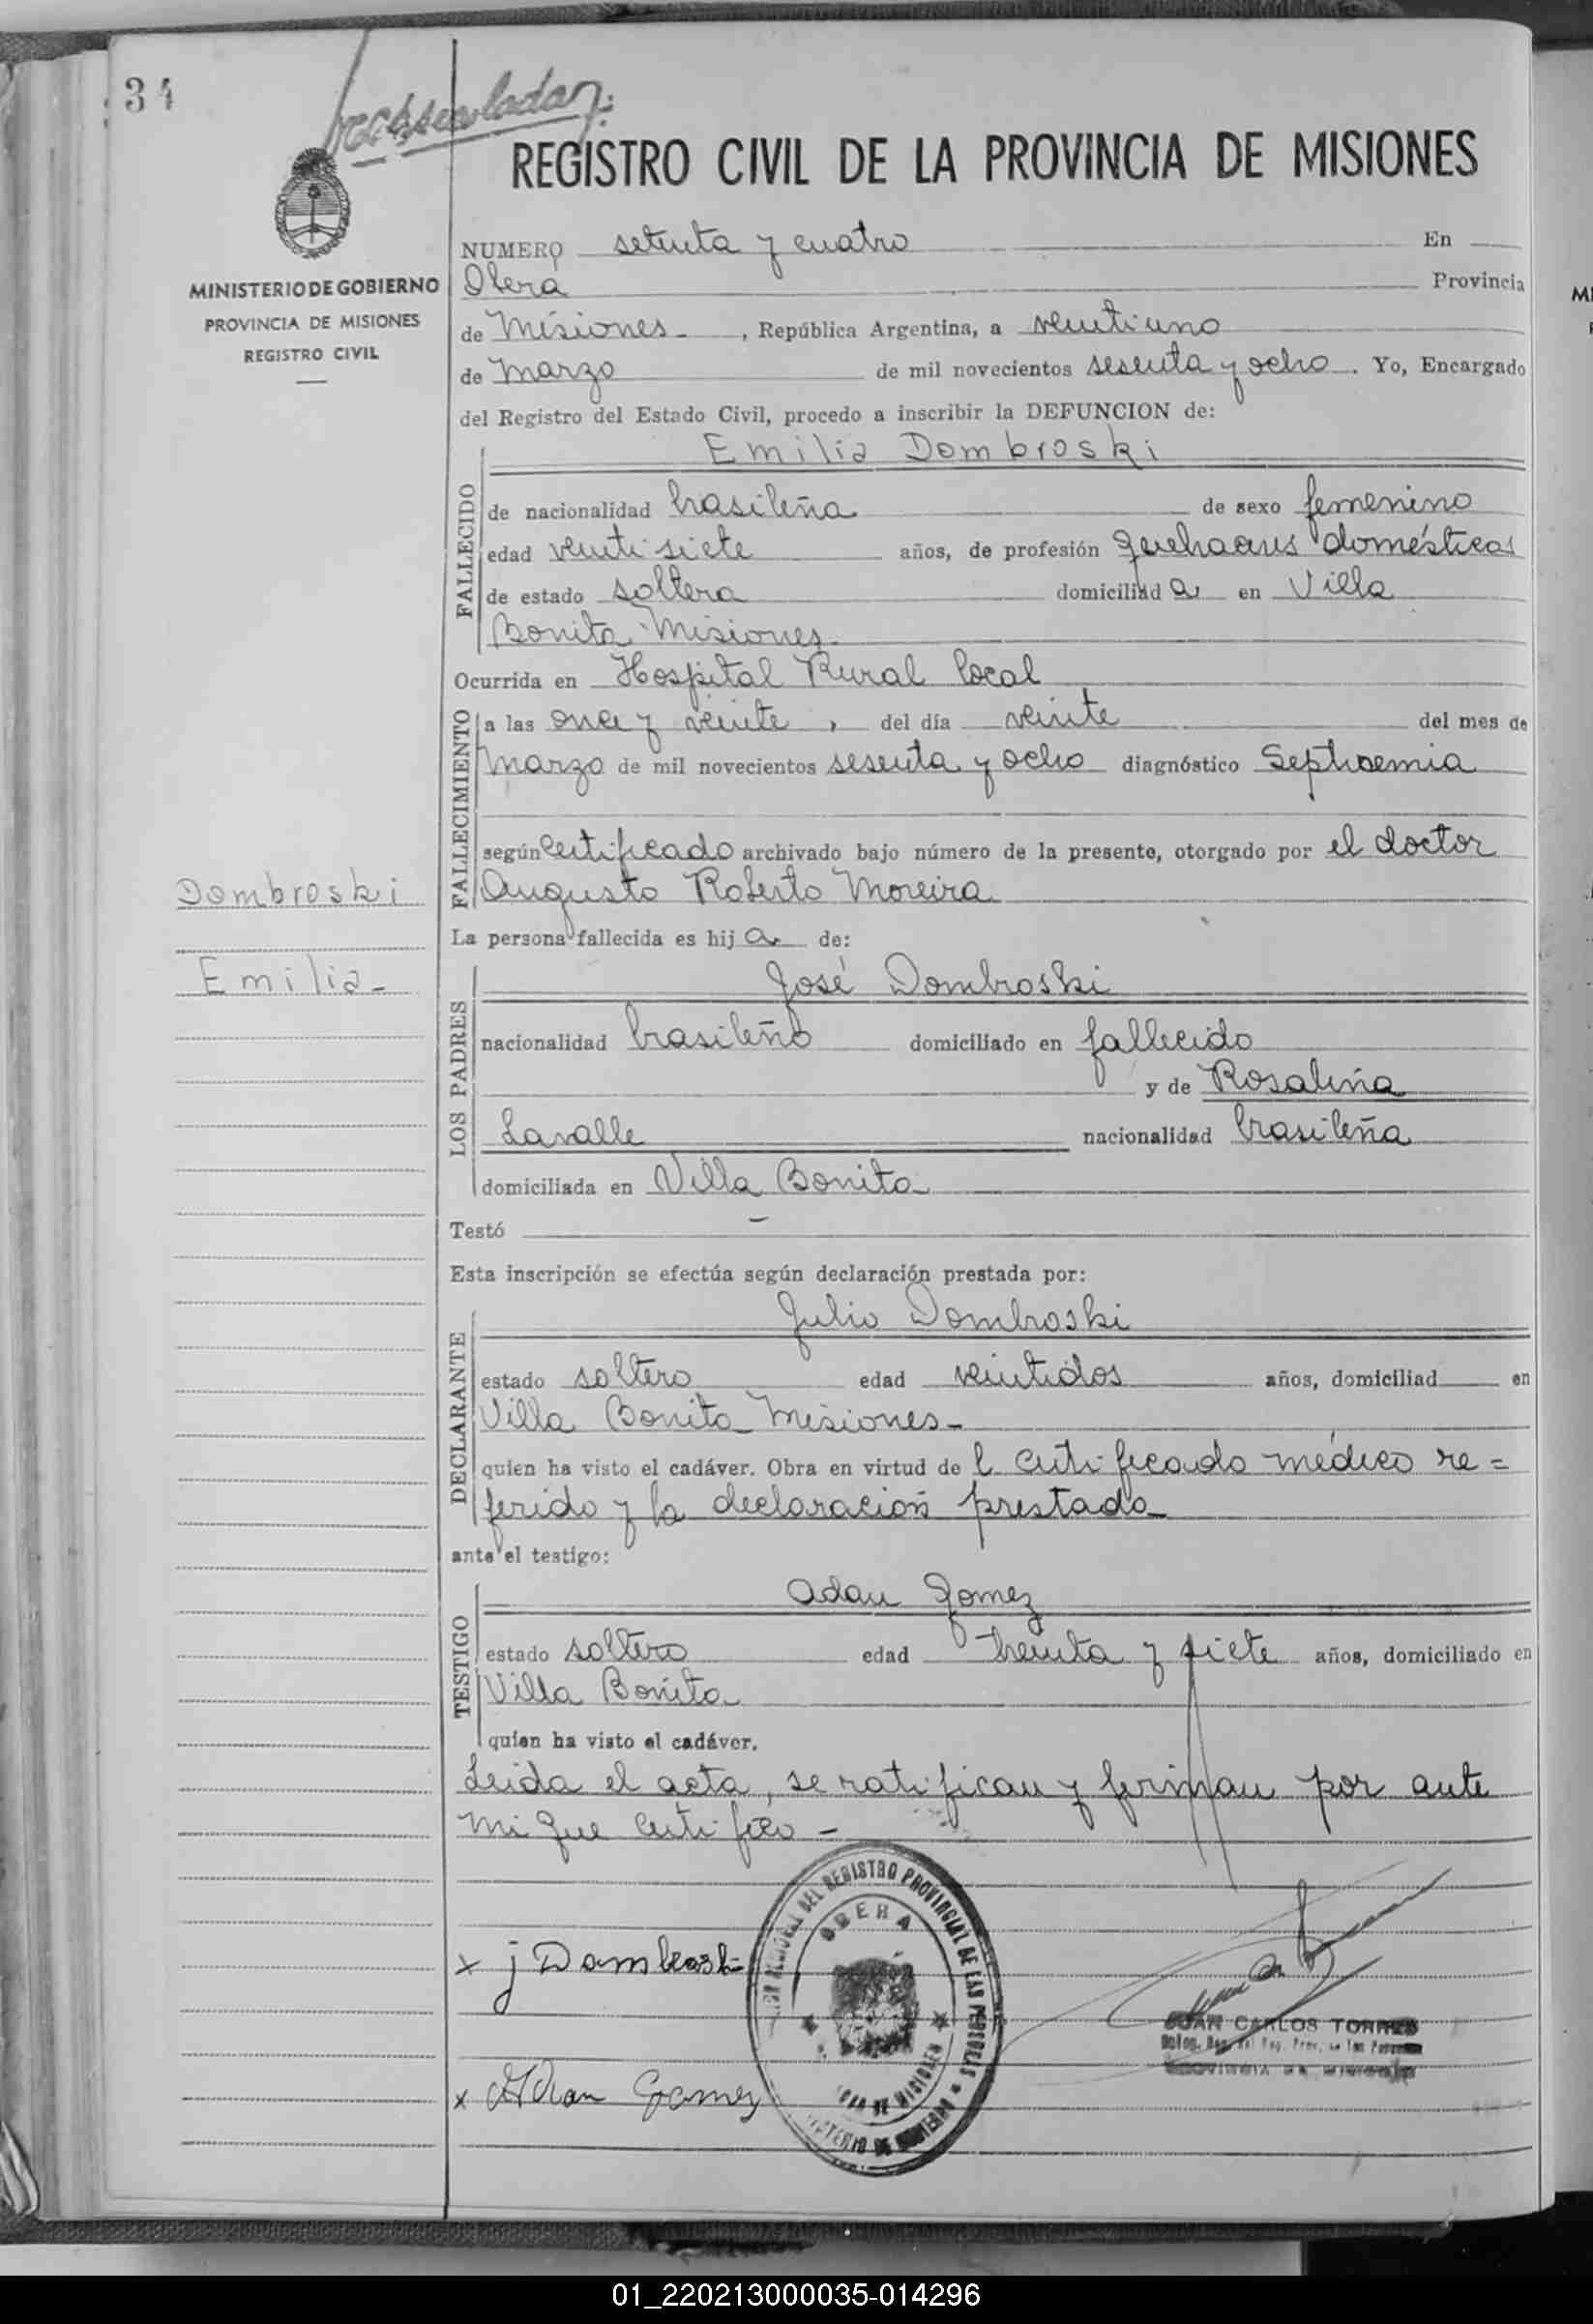 34
REGISTRO CIVIL DE LA PROVINCIA DE MISIONES
MINISTERIO DE GOBIERNO
PROVINCIA DE MISIONES
REGISTRO CIVIL
NUMERO setenta y cuatro En
Oberá Provincia
de Misiones , República Argentina, a veintiuno
de Marzo de mil novecientos sesenta y ocho . Yo, Encargado
del Registro del Estado Civil, procedo a inscribir la DEFUNCION de:
Emilia Dombroski
FALLECIDO
de nacionalidad brasileña de sexo femenino
edad veintisiete años, de profesión quehaceres domésticos
de estado soltera domiciliad a en Villa
Bonita Misiones
Ocurrida en Hospital Rural local
FALLECIMIENTO
a las once y veinte , del día veinte del mes de
Marzo de mil novecientos sesenta y ocho diagnóstico Septisemia
según certificado archivado bajo número de la presente, otorgado por el doctor
Augusto Roberto Moreira
Dombroski
Emilia-
La persona fallecida es hij a de:
LOS PADRES
José Dombroski
nacionalidad brasileño domiciliado en fallecido
y de Rosaliña
Lavalle nacionalidad brasileña
domiciliada en Villa Bonita
Testó -
Esta inscripción se efectúa según declaración prestada por:
DECLARANTE
Julio Dombroski
estado soltero edad veintidos años, domiciliad en
Villa Bonita Misiones-
quien ha visto el cadáver. Obra en virtud de l certificado médico re=
ferido y la declaración prestada
ante el testigo:
TESTIGO
Adan Gomez
estado soltero edad treinta y siete años, domiciliado en
Villa Bonita
quien ha visto el cadáver.
Leida el acta, se ratifican y firman por ante
mi que certifico-
x j Dombroski
x Adan Gomez
DEL REGISTRO PROVINCIAL DE LAS PERSONAS
OBERA
JUAN CARLOS TORRES
01_220213000035-014296